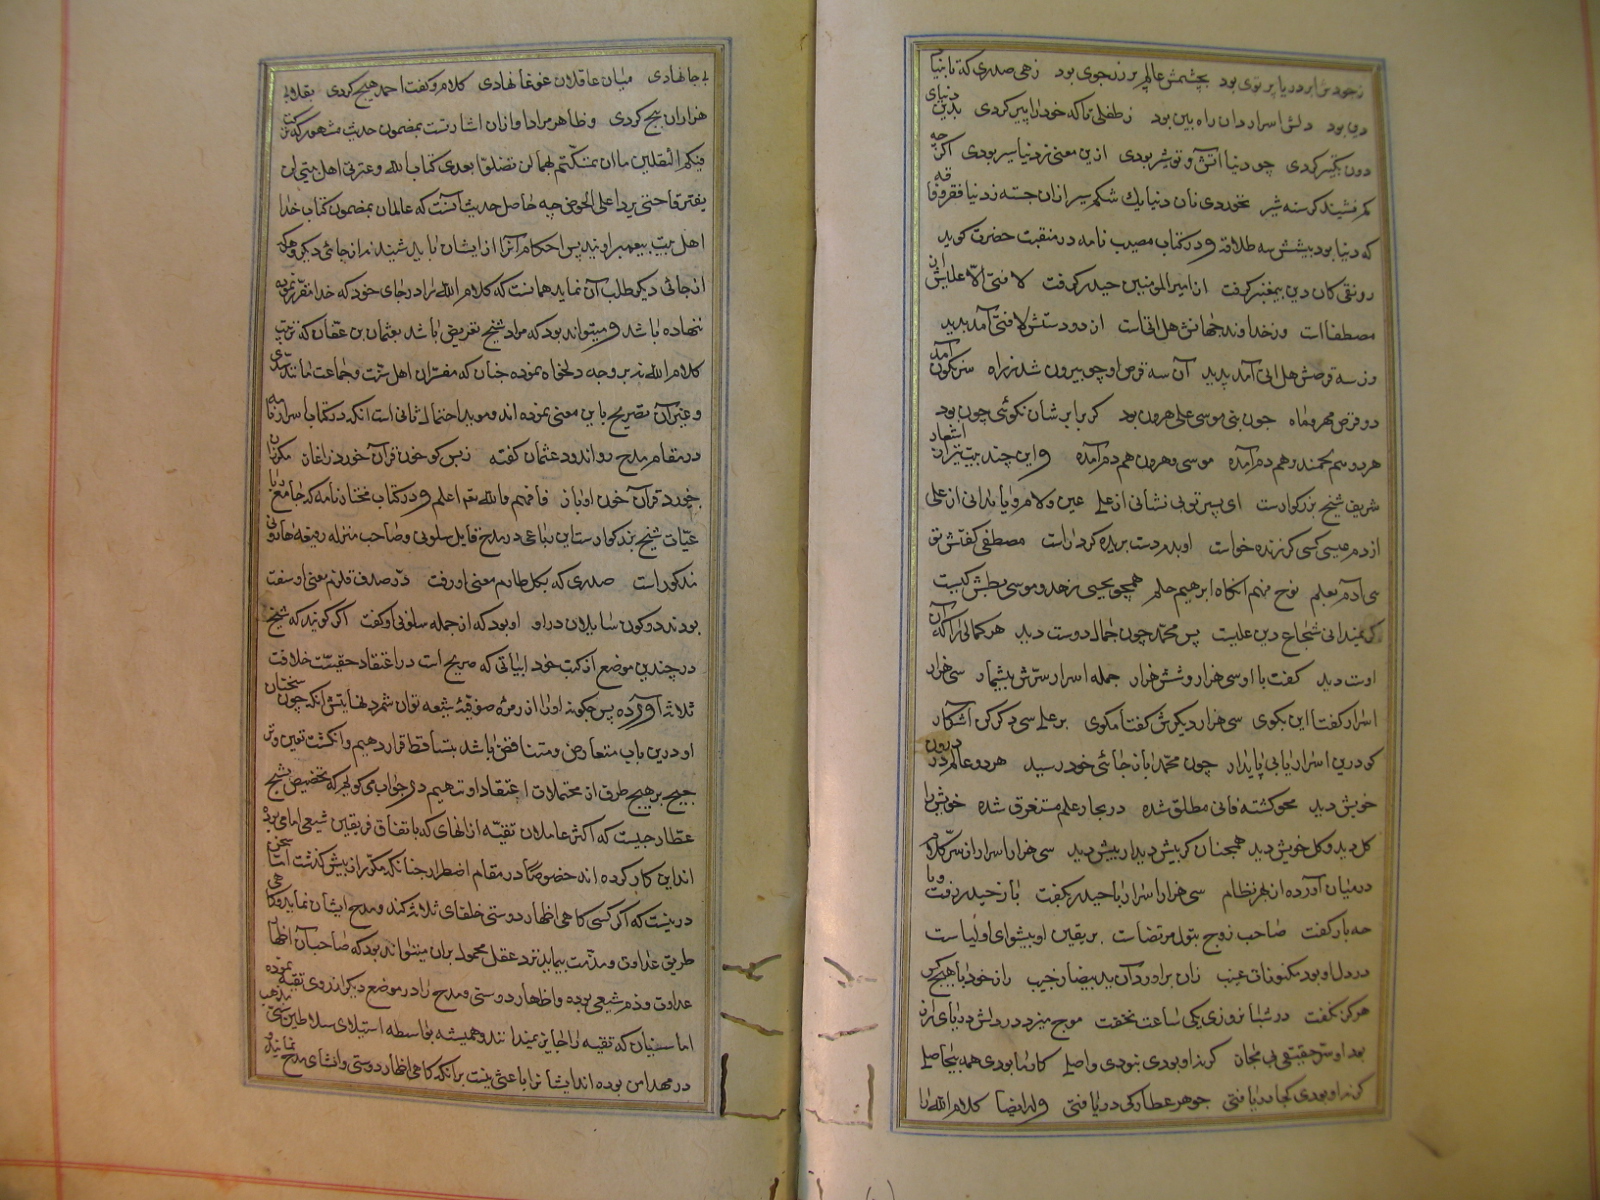 زجودش ابر دریا پر توی بود بچشمش عالم پر زر جوی بود زهی صدری که تا بنیاد
دین بود دلش اسرار دان راه بین بود ز طفلی تا که خود را پیر کردی بدین دنیای
دون تکبیر کردی چو دنیا آتش و تو شیر بودی ازین معنی ز دنیا سیر بودی اگر چه
کم نشیند گرسنه شیر نخوردی نان دنیا یک شکم سیر ازان جسته ز دنیا فقر و فاقه
که دنیا بود پیشش سه طلاقه و در کتاب مصیبت نامه در منقبت حضرت کوید
رونقی کان دین پیغمبر گرفت از امیر المومنین حیدر گرفت لا فتی الا علی از
مصطفا است وز خداوند جهانش هل اتی است از دو دستش لا فتی آمد پدید
وز سه قرصش هل اتی آمد پدید آن سه قرص او چو بیرون شد ز راه سرنگون آمد
دو قرص مهر و ماه چون نبی موسی علی هرون بود گر برابرشان نگوئی چون بود
هر دو هم دم آمده موسی و هرون هم دم آمده و این چند بیت نیز از اشعار
شریف شیخ بزرگوار است ای پسر تو بی نشانی از علی عین و لام و یا بدانی از علی
از دم عیسی کسی گر زنده خواست او بدم دست بریده کرد راست مصطفی گفتش تو
آدم بعلم نوح فهم انگاه ابرهیم حلم همچو یحیی زهد و موسی بطش کیست
گر نمیدانی شجاع دین علیست پس محمد چون جمال دوست دید هر کمالی را که آن
اوست دید گفت با او سی هزار و شش هزار جمله اسرار سرش بیشمار سی هزار
اسرار گفتا این بگوی سی هزار دیگرش گفتا مگوی بر علی سی دگر کن آشکار
کو درین اسرار یابی پایدار چون محمد باز جائی خود رسید هر دو عالم در درون
خویش دید محو گشته فانی مطلق شده در بحار علم مستغرق شده خویش را
کل دید و کل خویش دید همچنان کز پیش دید از پیش دید سی هزار اسرار از سر کلام
در میان آورده از بهر نظام سی هزار اسرار با حیدر بگفت باز حیدر رفت و با
چه باز گفت صاحب زوج بتول مرتضاست بر یقین او پیشوای اولیاست
در دل او بود مکنونات غیب زان برآورد آن ید بیضا ز جیب راز خود با هیچ کس
هرگز نگفت در شبانروزی یکی ساعت نخفت موج میزد در دلش دریای راز
بود او سر حقیقی بی مجاز گر نه او بودی نبودی واصلی کار ما بودی همه بیحاصلی
گر نه او بودی کجا در یافتی جوهر عطار کی در یافتی وله ایضا کلام الله را
بی جا نهادی میان عاقلان غوغا نهادی کلام و گفت احمد هیچ کردی بقلابی
هزاران پیچ کردی و ظاهر مراد او ازان اشارتست بمضمون حدیث مشهور که ترکت
فیکم الثقلین ما ان تمسکتم لهما لن تضلوا بعدی کتاب الله و عترتی اهل بیتی لن
یفترقا حتی یردا علی الحوض چه حاصل حدیث آنست که عالمان بمضمون کتاب خدا
اهل بیت پیغمبر اویند پس احکام آنرا از ایشان باید شنید نه از جائی دیگر و هر که
از جائی دیگر طلب آن نماید همانست که کلام الله را در جای خود که خدا مقرر نموده
ننهاده باشد و میتواند بود که مراد شیخ تعریض باشد بعثمان بن عفان که ترتیب
کلام الله نه بر وجه دلخواه نموده چنان که مفسران اهل سنت و جماعت مانند سدی
و غیر آن تصریح باین معنی نموده اند و موید احتمال ثانی است آنکه در کتاب اسرار نامه
در مقام مدح دو اندود عثمان گفته زبس کو خون قرآن خورد ز آغاز مگر آن
خورد قرآن خون او باز فافهم والله یعلم و در کتاب مختار نامه که جامع رباعیات
شیخ بزرگوار است این رباعی در مدح قایل سلونی و صاحب منزله رفیعه هارونی
مذکور است صدری که بکل طارم معنی او رفت در صدف قلزم معنی او سفت
بودند دو کون سایلان در او او بود که از جمله سلونی او گفت اگر گویند که شیخ
در چندین موضع از کتب خود ابیاتی که صریح است در اعتقاد حقیقت خلافت
ثلاثه آورده پس چگونه او را از زمره صوفیه شیعه توان شمرد نهایتش آنکه چون سخنان
او درین باب متعارض و متناقض باشد بتساقط قرار دهیم و انگشت تعیین و ترجیح
بر هیچ طرف از محتملات اعتقاد او ننهیم در جواب می گویم که تخصیص شیخ
عطار چیست که اکثر عاملان تقیه از آنهای که باتفاق فریقین شیعی امامی بوده
اند این کار کرده اند خصوصا در مقام اضطرار چنانکه مکرر از پیش گذشت اما سخن
درینست که اگر کسی گاهی اظهار دوستی خلفای ثلاثه کند و مدح ایشان نماید و گاهی
طریق عداوت و مذمت پیماید نزد عقل محمول بران میتواند بود که صاحب آن اظهار
عداوت و ذم شیعی بوده و اظهار دوستی و مدح را در موضع دیگر از روی تقیه نموده
اما سنیان که تقیه را جایز نمیدانند و همیشه بواسطه استیلای سلاطین سنی مذهب
در مهد امن بوده اند ایشانرا باعثی نیست بر آنکه گاهی اظهار دوستی و انشای مدح نمایند